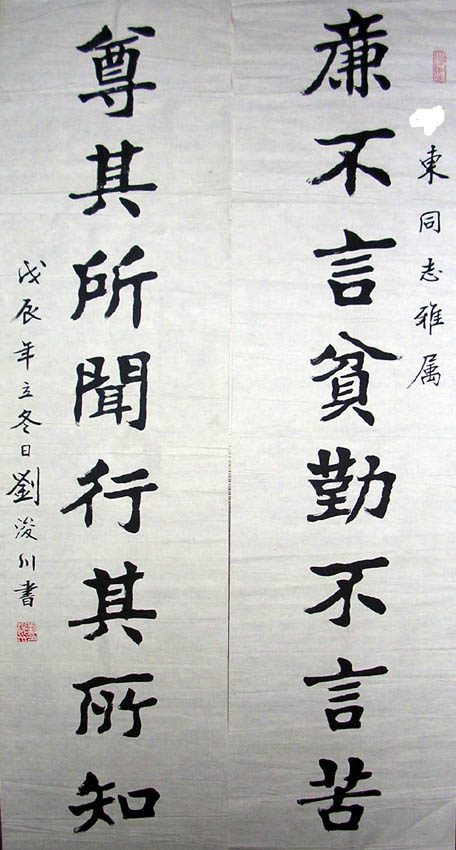 東同志雅属
廉不言貧勤不言苦
尊其所聞行其所知
戊辰年立冬日劉浚川書